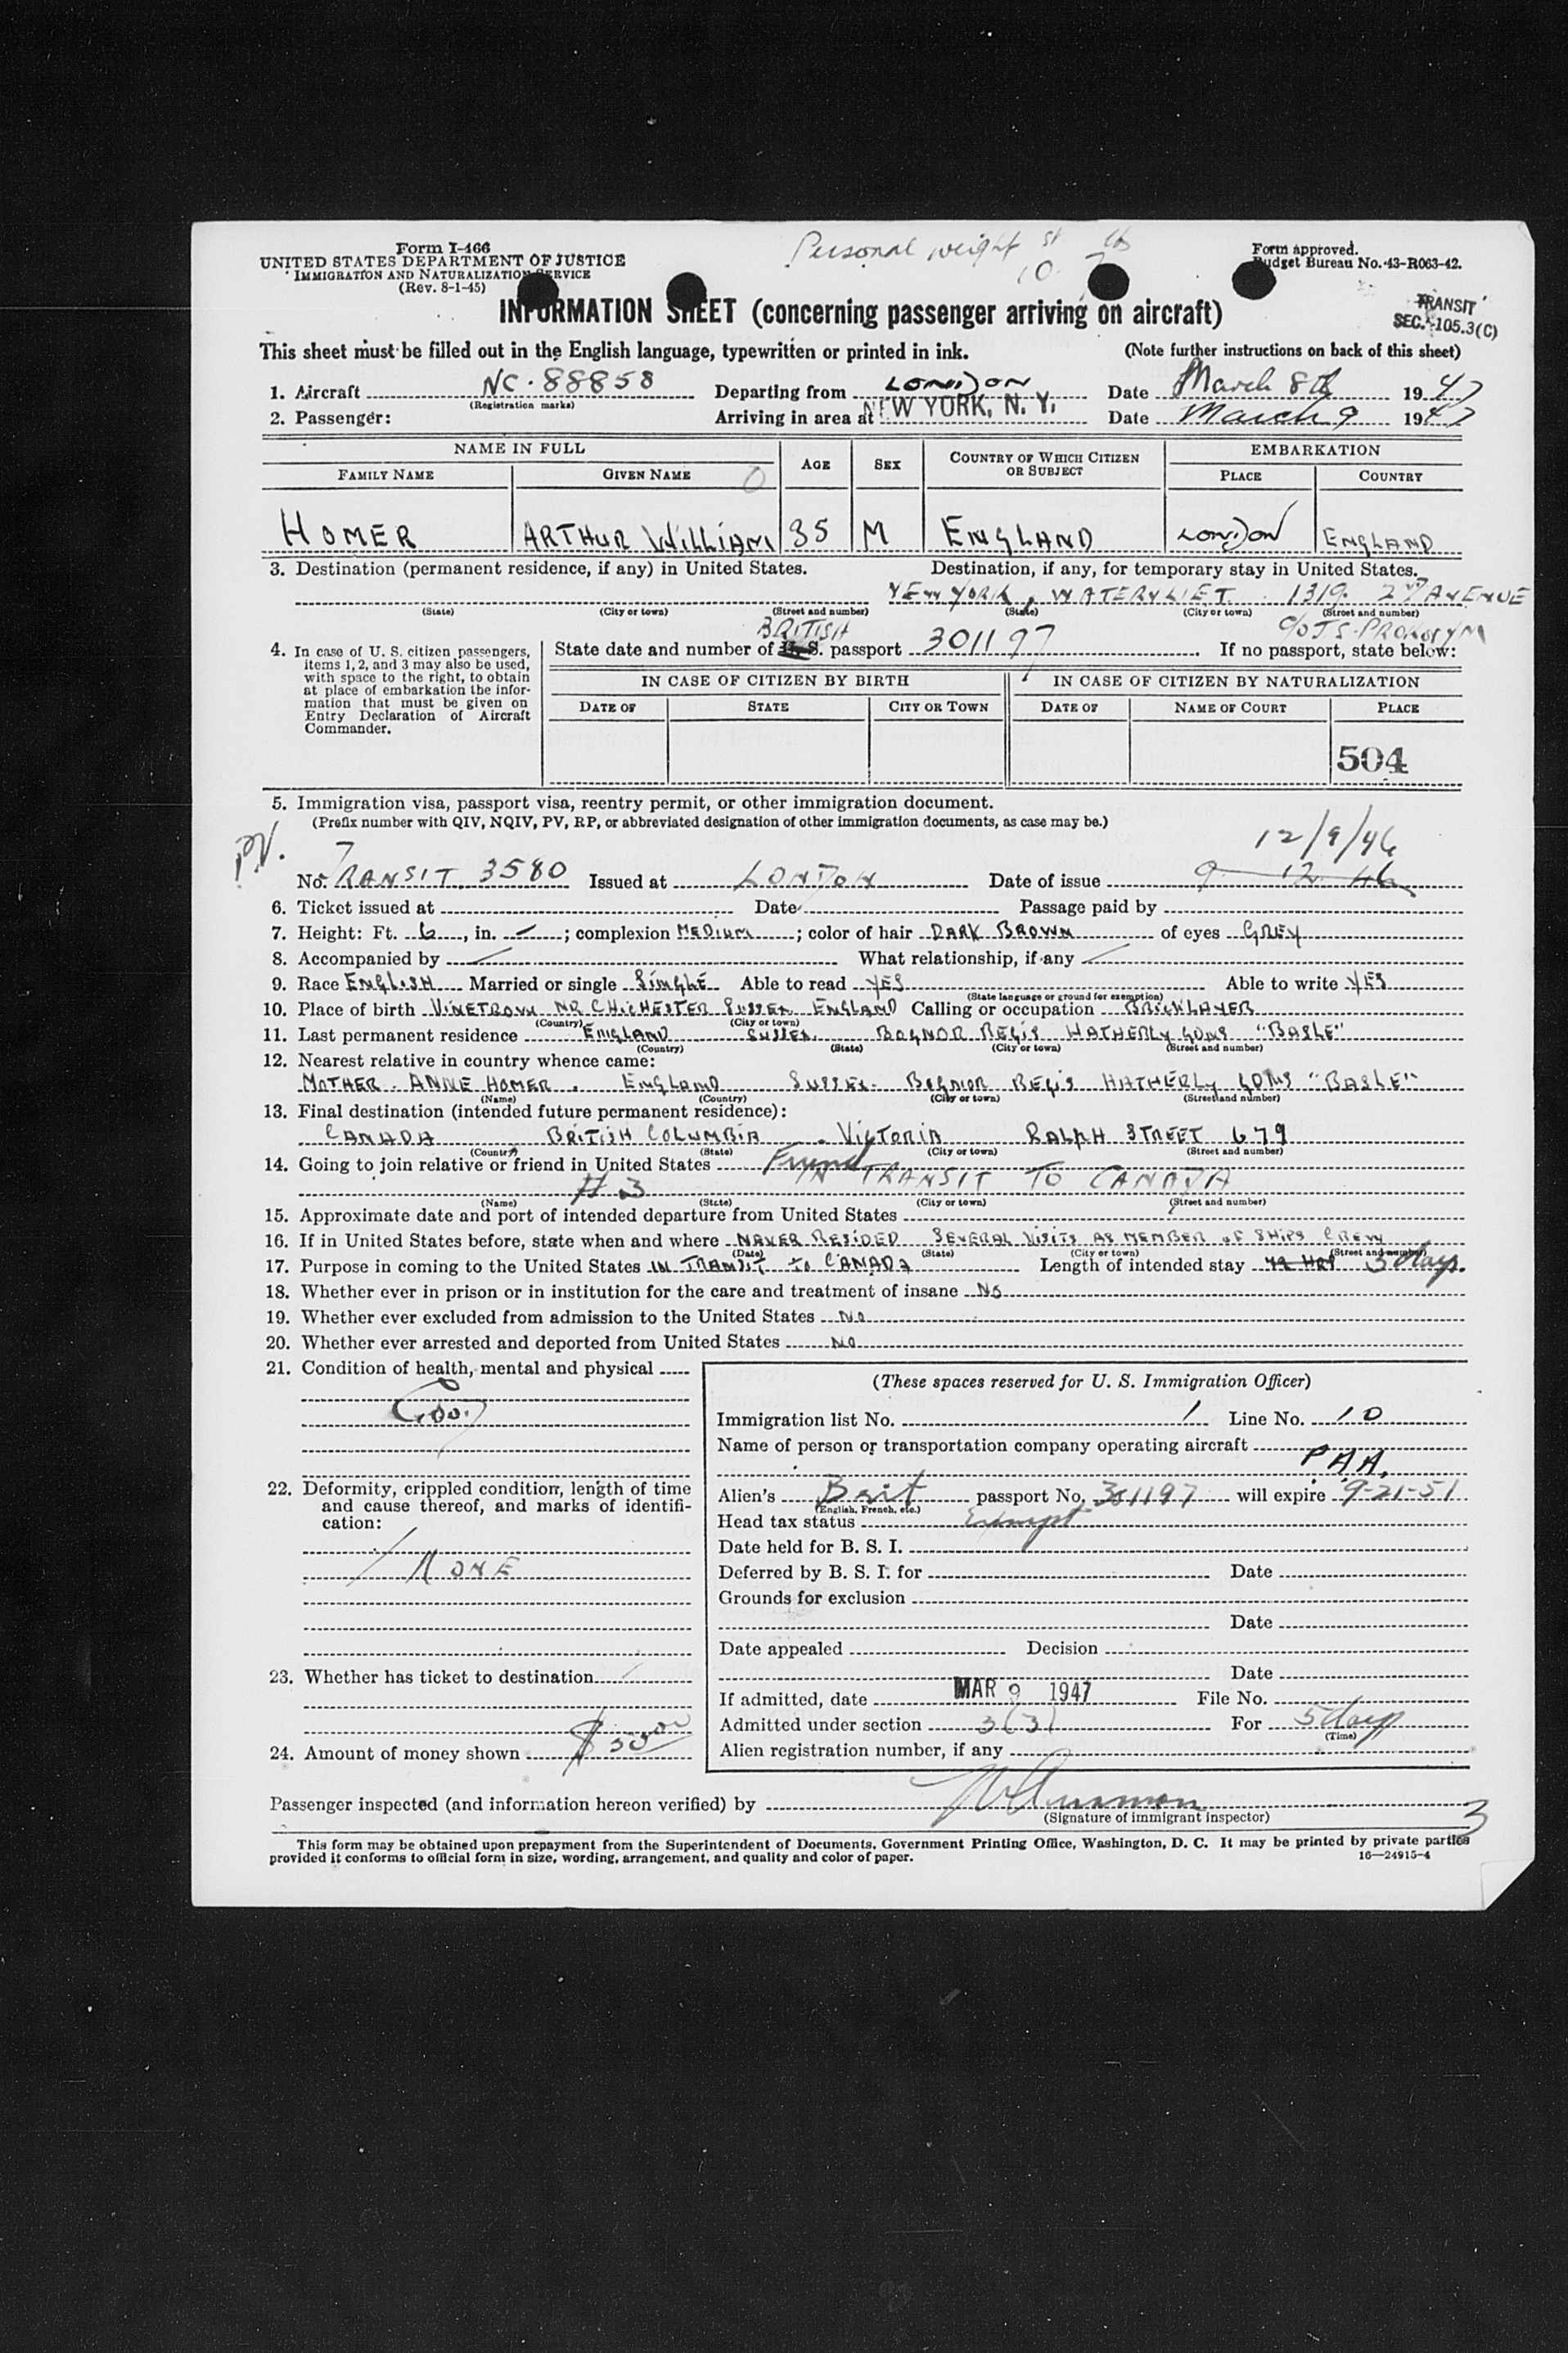 Form I-466
UNITED STATES DEPARTMENT OF JUSTICE
IMMIGRATION AND NATURALIZATION SERVICE
(Rev. 8-1-45)
Personal weight st lb
10 7
Form approved.
Budget Bureau No. 43-R063-42.
INFORMATION SHEET (concerning passenger arriving on aircraft)
TRANSIT
SEC. 105.3(C)
This sheet must be filled out in the English language, typewritten or printed in ink. (Note further instructions on back of this sheet)
1. Aircraft NC. 88858 Departing from LONDON Date March 8th 1947
(Registration marks)
2. Passenger: Arriving in area at NEW YORK, N. Y. Date March 9 1947
NAME IN FULL AGE SEX COUNTRY OF WHICH CITIZEN OR SUBJECT EMBARKATION
FAMILY NAME GIVEN NAME PLACE COUNTRY
HOMER ARTHUR WILLIAM 35 M ENGLAND LONDON ENGLAND
3. Destination (permanent residence, if any) in United States. Destination, if any, for temporary stay in United States.
NEW YORK, WATERVLIET 1319 2ND AVENUE
(State) (City or town) (Street and number) (State) (City or town) (Street and number)
BRITISH c/o J S
4. In case of U. S. citizen passengers, items 1, 2, and 3 may also be used, with space to the right, to obtain at place of embarkation the information that must be given on Entry Declaration of Aircraft Commander.
State date and number of U. S. passport 301197 If no passport, state below:
IN CASE OF CITIZEN BY BIRTH IN CASE OF CITIZEN BY NATURALIZATION
DATE OF STATE CITY OR TOWN DATE OF NAME OF COURT PLACE
504
5. Immigration visa, passport visa, reentry permit, or other immigration document.
(Prefix number with QIV, NQIV, PV, RP, or abbreviated designation of other immigration documents, as case may be.)
PV. 12/9/46
No. TRANSIT 3580 Issued at LONDON Date of issue 9 12 46
6. Ticket issued at Date Passage paid by
7. Height: Ft. 6, in. –; complexion MEDIUM; color of hair DARK BROWN of eyes GREY
8. Accompanied by What relationship, if any
9. Race ENGLISH Married or single SINGLE Able to read YES Able to write YES
(State language or ground for exemption)
10. Place of birth NR CHICHESTER SUSSEX ENGLAND Calling or occupation BRICKLAYER
(Country) (City or town)
11. Last permanent residence ENGLAND SUSSEX BOGNOR REGIS HATHERLY GDNS "BASLE"
(Country) (State) (City or town) (Street and number)
12. Nearest relative in country whence came:
MOTHER. ANNE HOMER. ENGLAND SUSSEX. BOGNOR REGIS HATHERLY GDNS "BASLE"
(Name) (Country) (City or town) (Street and number)
13. Final destination (intended future permanent residence):
CANADA BRITISH COLUMBIA VICTORIA RALPH STREET 679
(Country) (State) (City or town) (Street and number)
14. Going to join relative or friend in United States Friend
# 3 IN TRANSIT TO CANADA
(Name) (State) (City or town) (Street and number)
15. Approximate date and port of intended departure from United States
16. If in United States before, state when and where NEVER RESIDED SEVERAL VISITS AS MEMBER OF SHIPS CREW
(Date) (State) (City or town) (Street and number)
17. Purpose in coming to the United States IN TRANSIT TO CANADA Length of intended stay HRS 3 days.
18. Whether ever in prison or in institution for the care and treatment of insane NO
19. Whether ever excluded from admission to the United States NO
20. Whether ever arrested and deported from United States NO
21. Condition of health, mental and physical
Good
22. Deformity, crippled condition, length of time and cause thereof, and marks of identification:
NONE
23. Whether has ticket to destination
24. Amount of money shown $ 35 00
(These spaces reserved for U. S. Immigration Officer)
Immigration list No. 1 Line No. 10
Name of person or transportation company operating aircraft
P.A.A.
Alien's Brit passport No. 301197 will expire 9-21-51
(English, French, etc.)
Head tax status Exempt
Date held for B. S. I.
Deferred by B. S. I. for Date
Grounds for exclusion
Date
Date appealed Decision
Date
If admitted, date MAR 9 1947 File No.
Admitted under section 3(3) For 5 days
(Time)
Alien registration number, if any
Passenger inspected (and information hereon verified) by
(Signature of immigrant inspector)
3
This form may be obtained upon prepayment from the Superintendent of Documents, Government Printing Office, Washington, D. C. It may be printed by private parties
provided it conforms to official form in size, wording, arrangement, and quality and color of paper. 16—24915-4